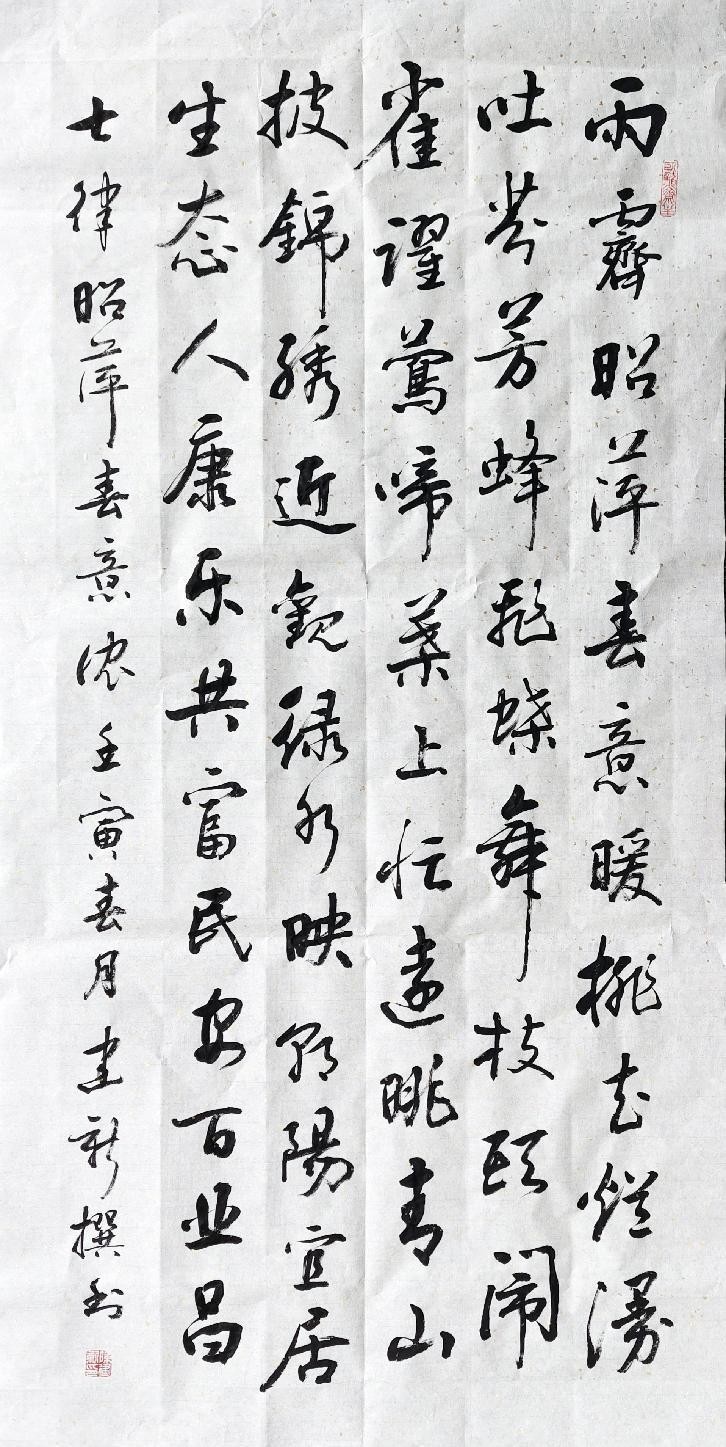 雨霽昭萍春意暖桃花烂漫
吐芬芳蜂飛蝶舞枝頭闹
雀躍莺啼葉上忙遠眺青山
披錦绣近觀绿水映朝陽宜居
生态人康乐共富民安百业昌
七律昭萍春意浓壬寅春月建新撰书